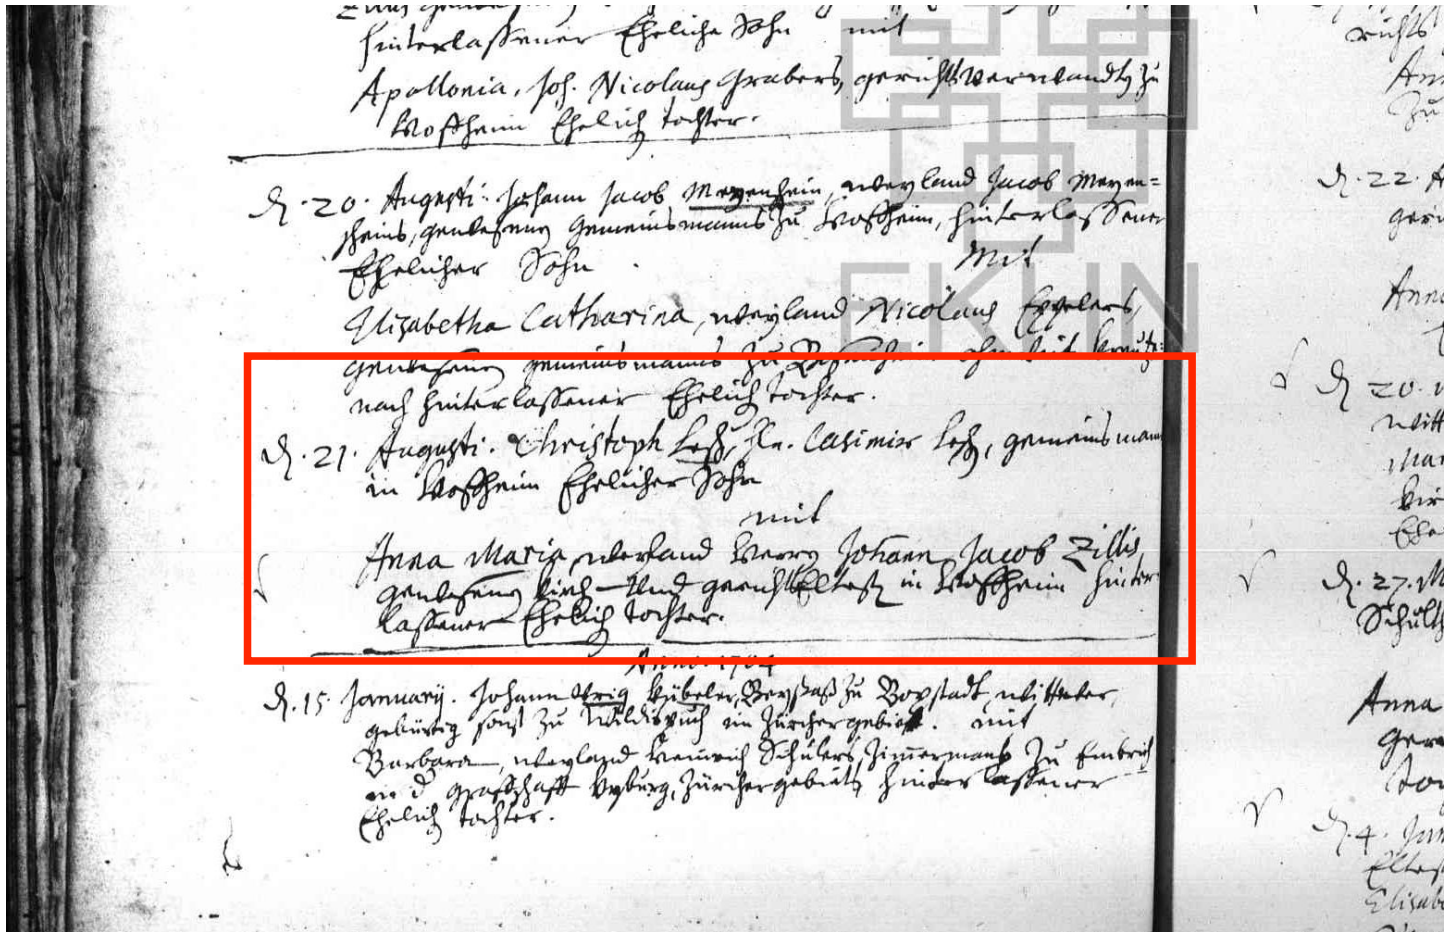 hinterlaßener Eheliche Sohn mit
Apollonia, Joh. Nicolaus Grabers, gerichtsverwandts zu
Ehelich tochter.
d. 20. Augusti. Johann Jacob Meyenhein, weyland Jacob Meyen=
heins, gewesenen Gemeinsmanns zu hinterlaßener
Ehelicher Sohn
Mit
Elizabetha Catharina, weyland Nicolaus
gewesenen gemeinsmanns zu
nach hinterlaßener Ehelich tochter.
d. 21. Augusti. Christoph Lesch, Hn. Casimir Lesch, gemeinsmann
in Ehelicher Sohn
mit
Anna Maria, weyland Herrn Johann Jacob Zillis,
gewesenen Kirch- Und gerichts Eltesten in hinter
laßener Ehelich tochter.
Anno 1704
d. 15. January. Johann Ulrig Kübeler, Beysaß zu Bopstadt, wittwer,
gebürtig sonst zu im Zürchergebiet. mit
Barbara, weyland Heinrich Schülers, Zimmermans zu Embrich
in d. Graffschafft Kyburg, Zürchergebiets hinterlaßener
Ehelich tochter.
richts
Ann
zu
d. 22.
geri
Anna
d. 20.
witt
Mar
Ehe
d. 27. M
Schulth
Anna
Gerv
d. 4. Jan
Eltest
Elisab
EKLIN